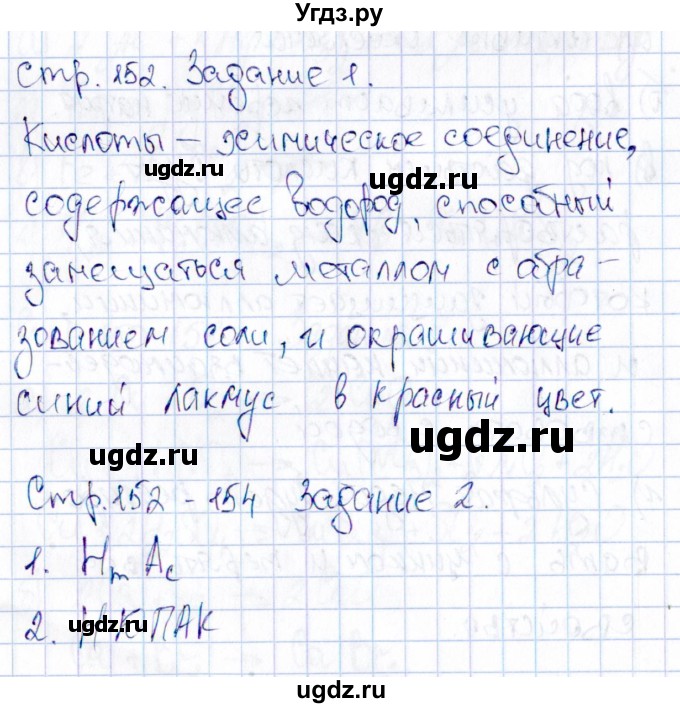 Угдз.ру
Стр. 152. Задание 1.
Кислоты – химическое соединение,
ugdz.ru
ugdz.ru
содержащее водород, способный
замещаться металлом с обра-
зованием соли, и окрашивающие
синий лакмус в красный цвет.
ugdz.ru
ugdz.ru
Стр. 152 - 154 Задание 2.
1. Hm Ac
2. ИЮПАК
ugdz.ru
ugdz.ru